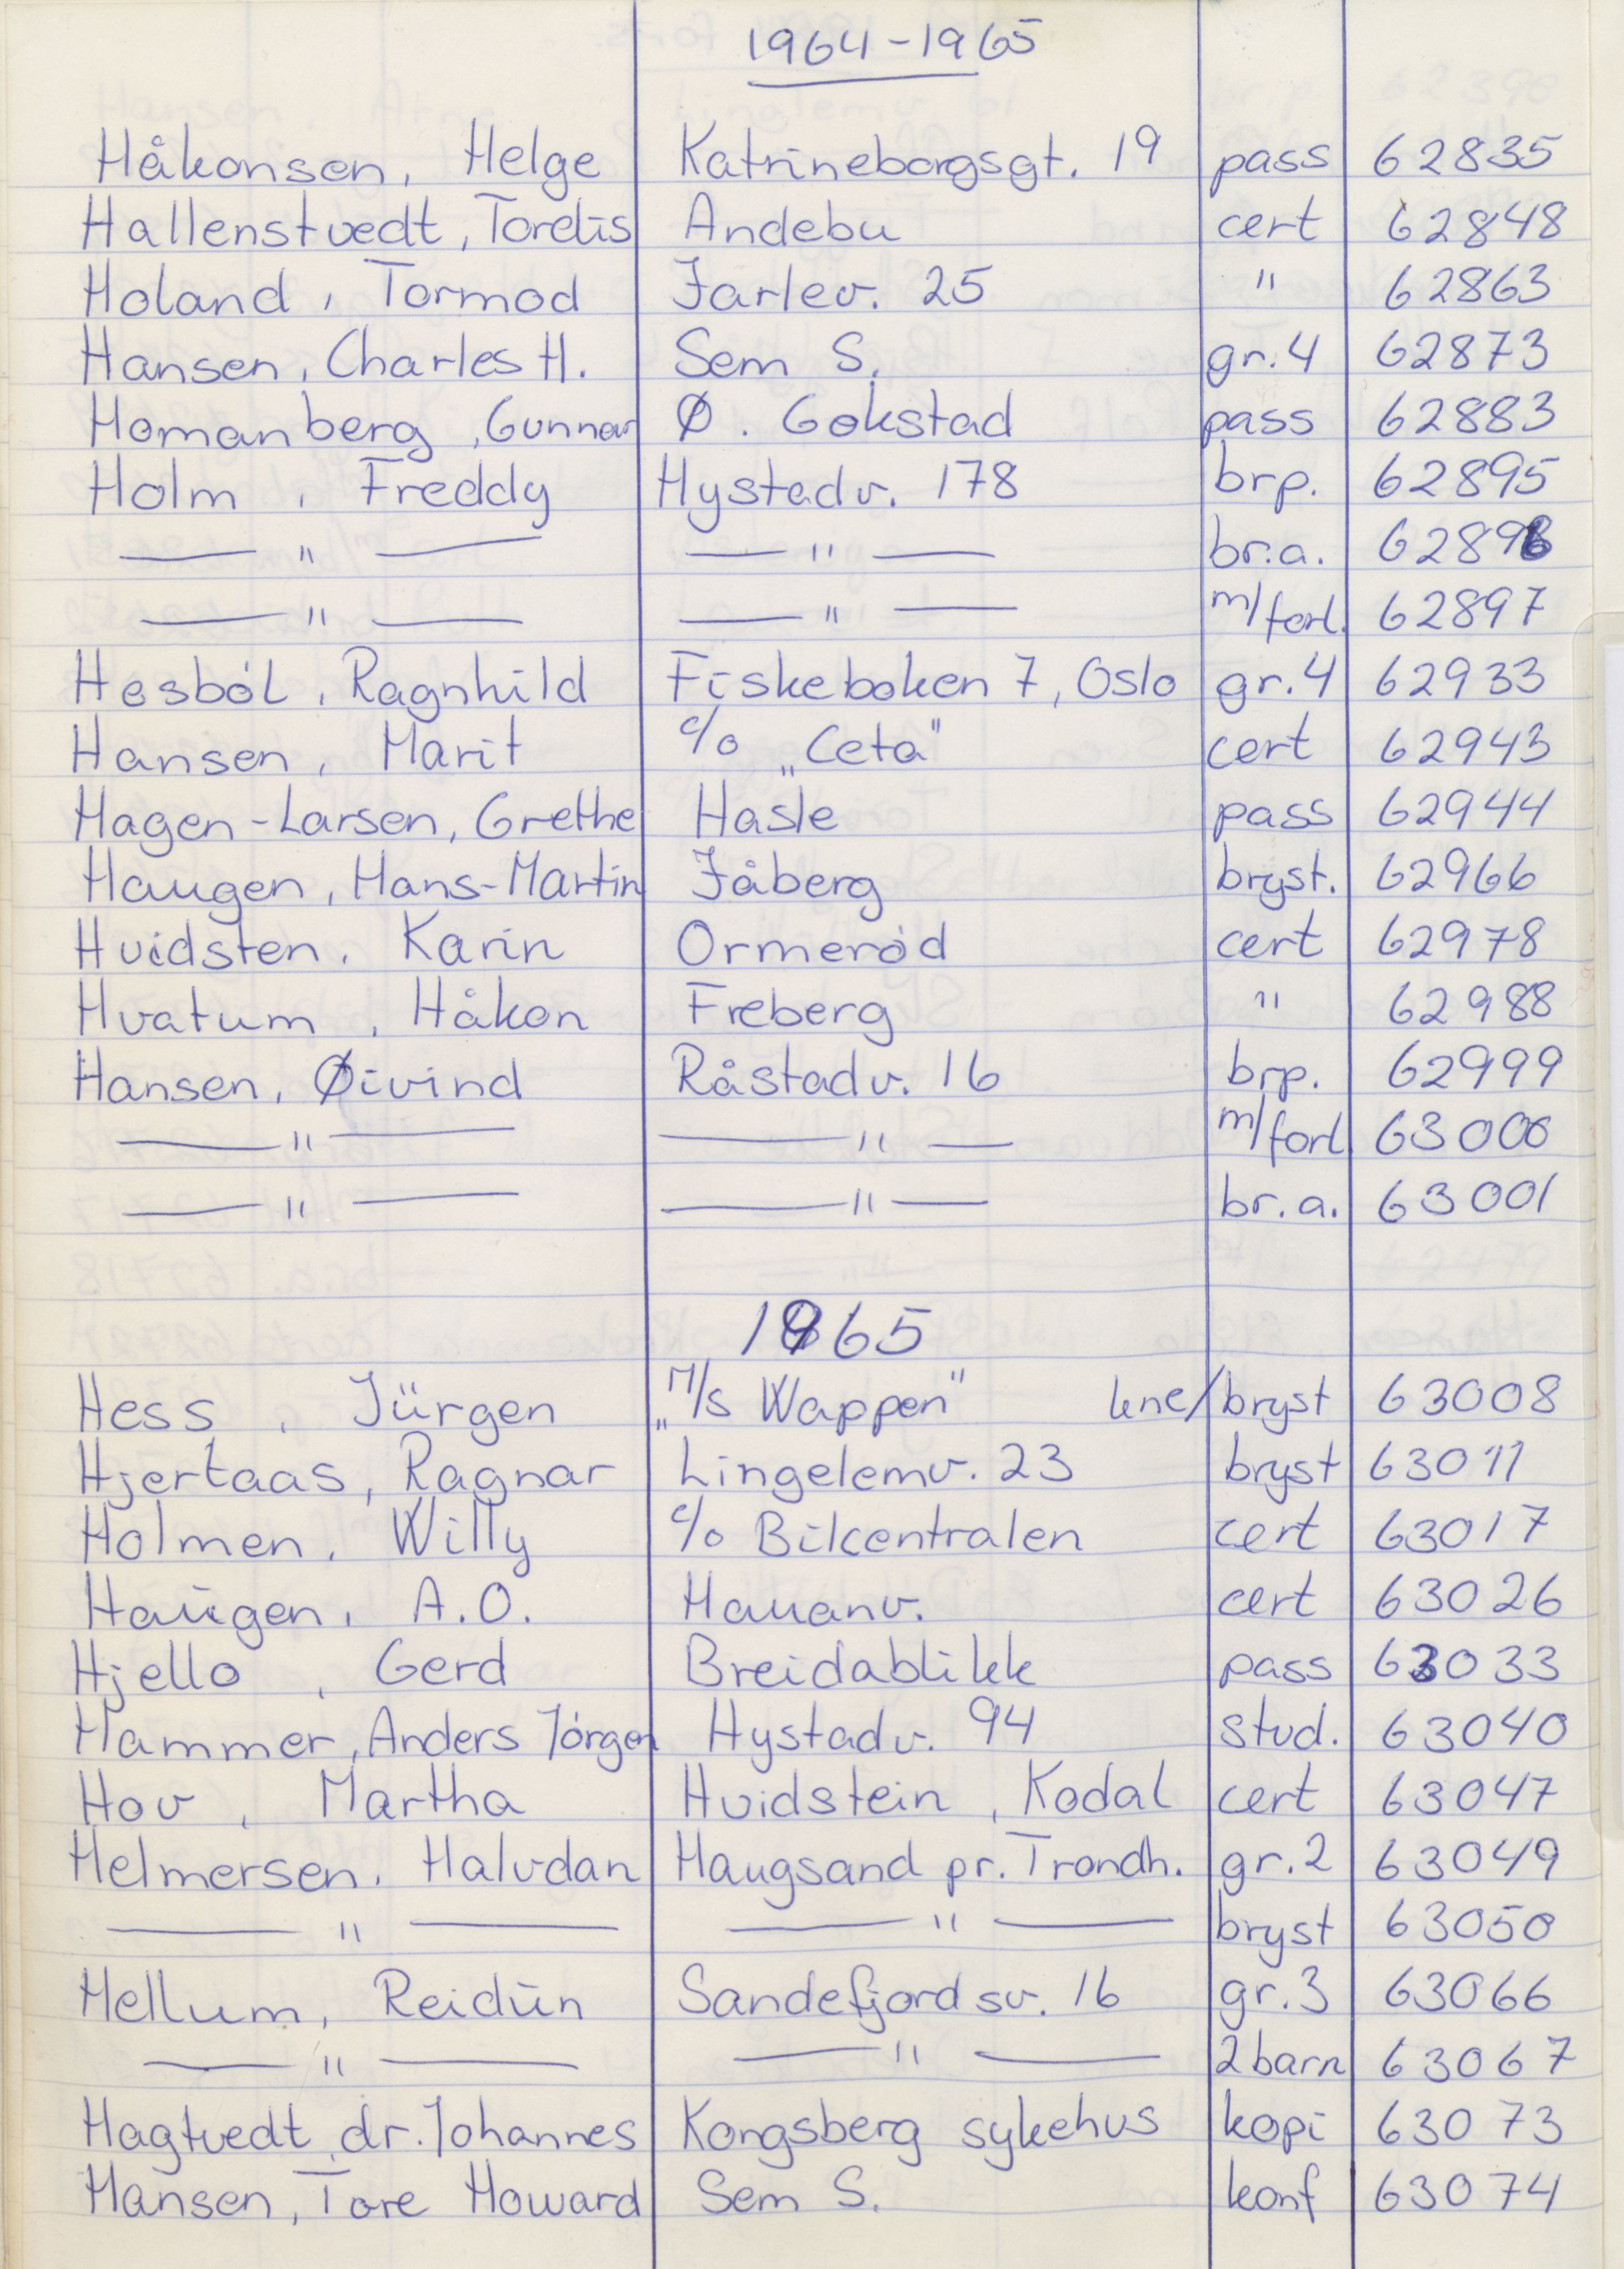 1964-1965
Håkonsen, Helge Katrineborgsgt. 19 pass 62835
Hallenstvedt, Tordis Andebu cert 62848
Holand, Tormod Jarlev. 25 " 62863
Hansen, Charles H. Sem S. gr.4 62873
Homanberg, Gunnar Ø. Gokstad pass 62883
Holm, Freddy Hystadv. 178 brp. 62895
— " — — " — br.a. 62896
— " — — " — m/forl. 62897
Hesból, Ragnhild Fiskeboken 7, Oslo gr.4 62933
Hansen, Marit c/o „Ceta" cert 62943
Hagen-Larsen, Grethe Hasle pass 62944
Haugen, Hans-Martin Jåberg bryst. 62966
Hvidsten, Karin Ormeród cert 62978
Hvatum, Håkon Freberg " 62988
Hansen, Øivind Råstadv. 16 brp. 62999
— " — — " — m/forl 63000
— " — — " — br.a. 63001
1965
Hess, Jürgen „M/s Wappen" kne/bryst 63008
Hjertaas, Ragnar Lingelemv. 23 bryst 63011
Holmen, Willy c/o Bilcentralen cert 63017
Haugen, A.O. Hauanv. cert 63026
Hjello, Gerd Breidablikk pass 63033
Hammer, Anders Jórgen Hystadv. 94 stud. 63040
Hov, Martha Hvidstein, Kodal cert 63047
Helmersen, Halvdan Haugsand pr. Trondh. gr.2 63049
— " — — " — bryst 63050
Hellum, Reidun Sandefjordsv. 16 gr.3 63066
— " — — " — 2 barn 63067
Hagtvedt, dr. Johannes Kongsberg sykehus kopi 63073
Hansen, Tore Howard Sem S. konf 63074